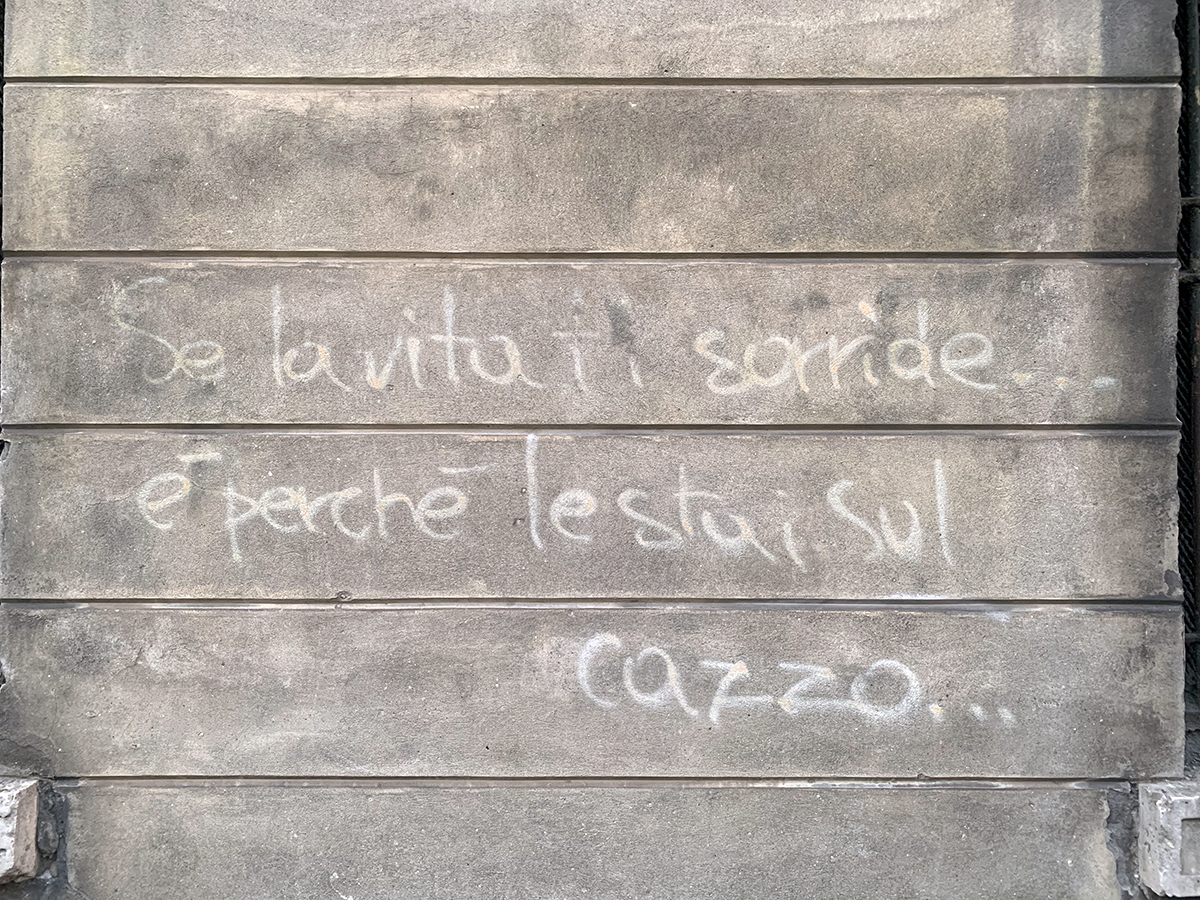 Se la vita ti sorride...
è perché le stai sul
cazzo...